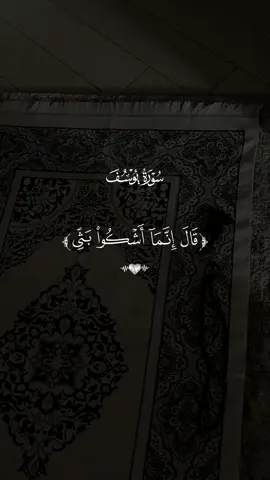 سُورَةُ يُوسُفَ
﴿قَالَ إِنَّمَآ أَشْكُوا۟ بَثِّى﴾